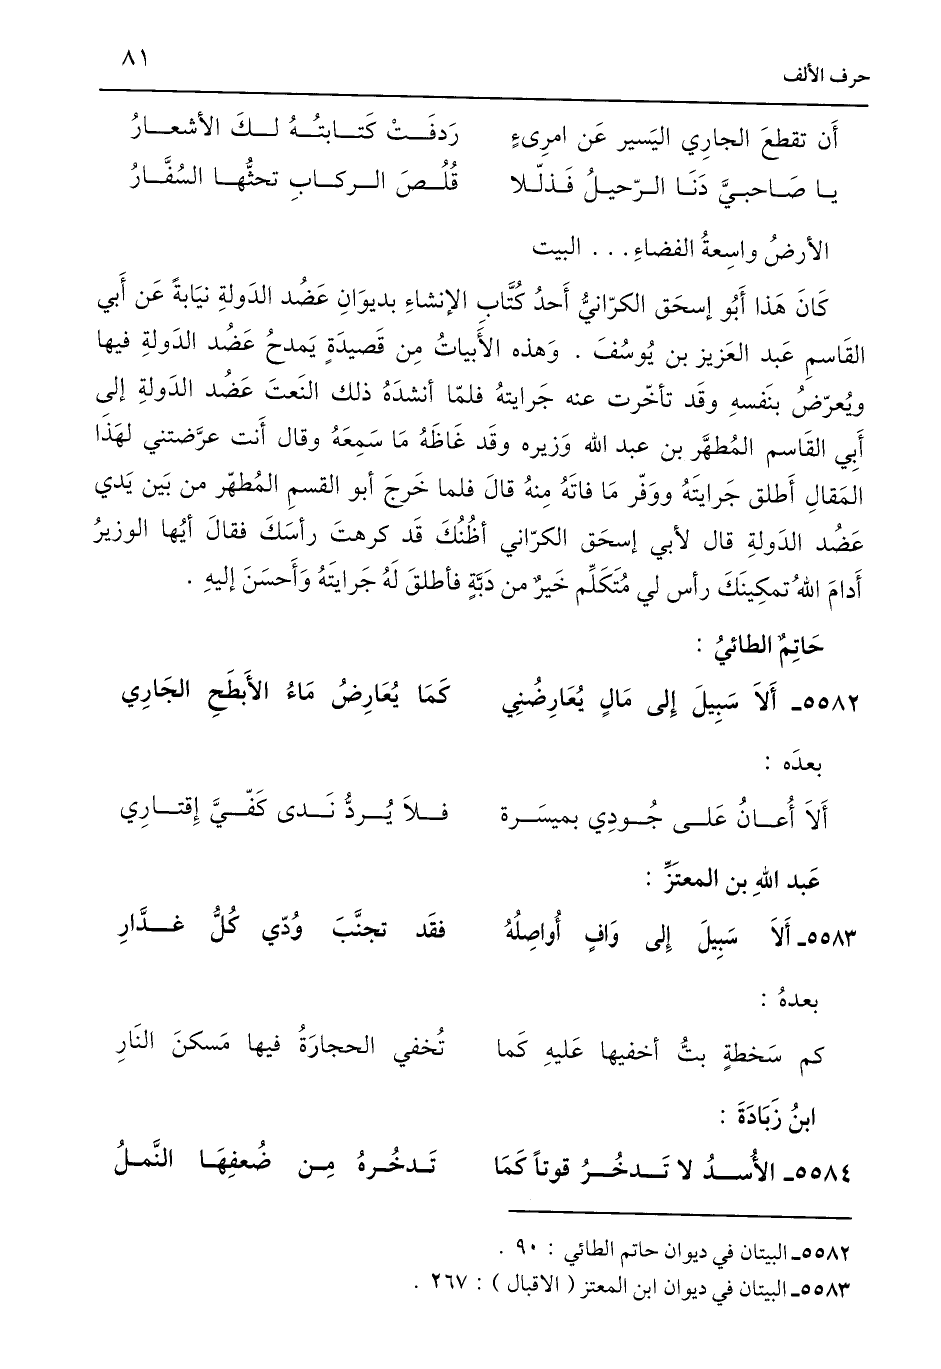 حرف الألف ٨١
أَن تقطعَ الجارِي اليَسير عَن امرِىءٍ رَدفَتْ كتابتُهُ لكَ الأشعارُ
يا صَاحبيَّ دَنَا الرّحيلُ فَذلّلا قُلُصَ الركابِ تحثُّها السُفَّارُ
الأرضُ واسِعةُ الفضاءِ... البيت
كَانَ هَذا أَبُو إسحَق الكرّانيُّ أَحدُ كُتَّابِ الإنشاءِ بديوَانِ عَضُد الدَولةِ نيَابةً عَن أَبي
القَاسمِ عبد العَزيز بن يُوسُفَ . وَهذه الأَبياتُ مِن قَصيدَةٍ يَمدحُ عَضُد الدَولةِ فيها
ويُعرّضُ بنَفسهِ وقَد تأخّرت عنه جَرايتهُ فلمّا أنشدَهُ ذلك النَعتَ عَضُد الدَولةِ إلى
أَبِي القَاسم المُطهَّر بن عبد الله وَزيره وقَد غَاظَهُ مَا سَمِعَهُ وقال أَنت عرَّضتني لهَذا
المَقالِ أَطلق جَرايتَهُ ووَفّر مَا فاتَهُ مِنهُ قالَ فلما خَرجَ أبو القسمِ المُطهّر من بَين يَدي
عَضُد الدَولةِ قال لأبي إسحَق الكرّاني أظُنُكَ قَد كرهتَ رأسَكَ فقالَ أيُها الوزيرُ
أَدامَ اللهُ تمكِينَكَ رأس لي مُتَكَلِّم خَيرٌ من دَبَّةٍ فأطلقَ لَهُ جَرايتَهُ وَأَحسَنَ إليهِ .
حَاتِمُ الطائيُ :
٥٥٨٢ـ أَلاَ سَبِيلَ إِلى مَالٍ يُعَارِضُنِي كَمَا يُعَارِضُ مَاءُ الأَبطَحِ الجَارِي
بعدَه :
أَلاَ أُعانُ عَلى جُودِي بميسَرة فلاَ يُردُّ نَدى كَفّيَّ إِقتارِي
عَبد اللهِ بن المعتَزِّ :
٥٥٨٣ـ أَلاَ سَبِيلَ إِلى وَافٍ أُواصِلُهُ فقَد تجنَّبَ وُدّي كُلُّ غدَّارِ
بعدهُ :
كم سَخطةٍ بتُّ أخفيها عَليهِ كَما تُخفي الحجارَةُ فيها مَسكنَ النَارِ
ابنُ زَبَادَةَ :
٥٥٨٤ـ الأُسدُ لا تَدخُرُ قوتاً كَمَا تَدخُرهُ مِن ضُعفِهَا النَّملُ
٥٥٨٢ـ البيتان في ديوان حاتم الطائي : ٩٠ .
٥٥٨٣ـ البيتان في ديوان ابن المعتز ( الاقبال ) : ٢٦٧ .